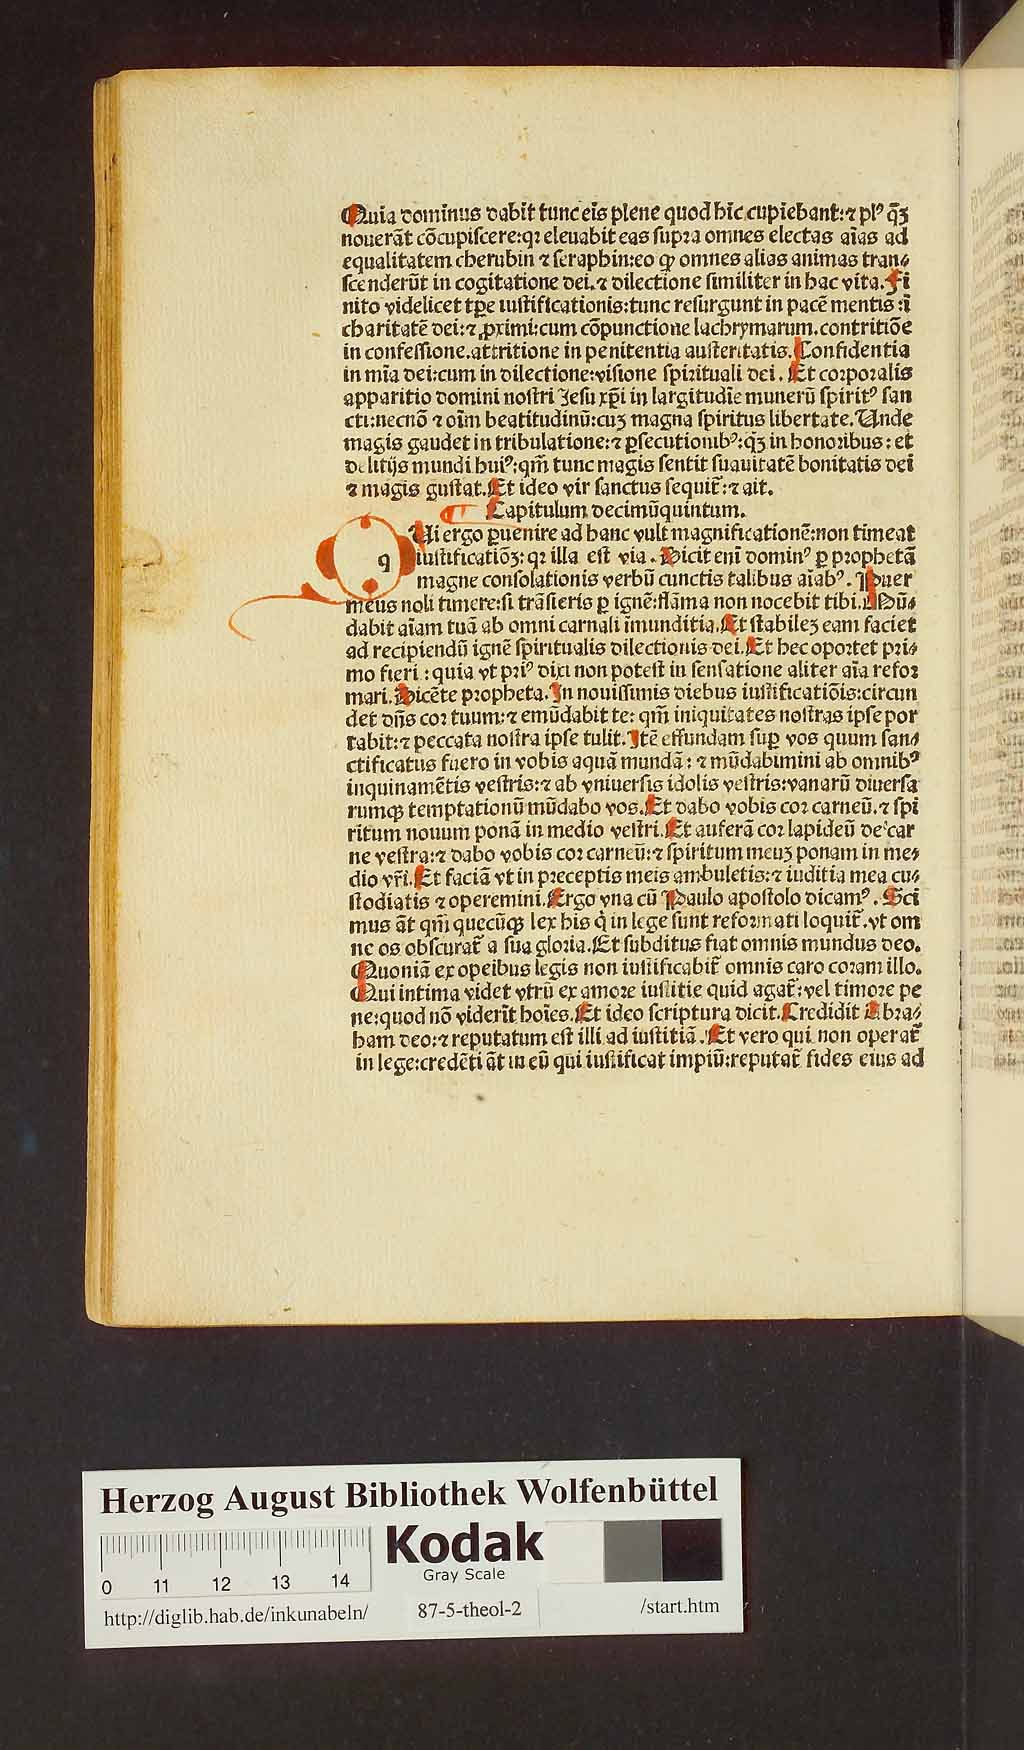 Quia dominus dabit tunc eis plene quod hic cupiebant:⁊ plꝰ q̃ꝫ
nouerãt cõcupiscere:qꝛ eleuabit eas supra omnes electas aĩas ad
equalitatem cherubin ⁊ seraphin:eo ꝙ omnes alias animas tran⸗
scenderũt in cogitatione dei.⁊ dilectione similiter in hac vita. Fi
nito videlicet tꝑe iustificationis:tunc resurgunt in pacẽ mentis :ĩ
charitatẽ dei:⁊ ꝓximi:cum cõpunctione lachrymarum.contritiõe
in confessione.attritione in penitentia austeritatis. Confidentia
in mĩa dei:cum in dilectione:visione spirituali dei. Et corporalis
apparitio domini nostri Jesu xp̃i in largitudĩe munerũ spiritꝰ san
cti:necnõ ⁊ oĩm beatitudinũ:cuꝫ magna spiritus libertate. Unde
magis gaudet in tribulatione:⁊ ꝑsecutionibꝰ:q̃ꝫ in honoribus: et
delitijs mundi huiꝰ:qm̃ tunc magis sentit suauitatẽ bonitatis dei
⁊ magis gustat. Et ideo vir sanctus sequit̃:⁊ ait.
Capitulum decimũquintum.
q Ui ergo ꝑuenire ad hanc vult magnificationẽ:non timeat
iustificatiõꝫ: qꝛ illa est via. Dicit enĩ dominꝰ ꝑ prophetã
magne consolationis verbũ cunctis talibus aĩabꝰ. Puer
meus noli timere:si trãsieris ꝑ ignẽ:flãma non nocebit tibi. Mũ⸗
dabit aĩam tuã ab omni carnali ĩmunditia. Et stabileꝫ eam faciet
ad recipiendũ ignẽ spiritualis dilectionis dei. Et hec oportet pri⸗
mo fieri : quia vt priꝰ dixi non potest in sensatione aliter aĩa refor
mari. Dicẽte propheta. In nouissimis diebus iustificatiõis:circun
det dñs cor tuum:⁊ emũdabit te: qm̃ iniquitates nostras ipse por
tabit:⁊ peccata nostra ipse tulit. Itẽ effundam suꝑ vos quum san⸗
ctificatus fuero in vobis aquã mundã: ⁊ mũdabimini ab omnibꝰ
inquinamẽtis vestris:⁊ ab vniuersis idolis vestris:vanarũ diuersa
rumqꝫ temptationũ mũdabo vos. Et dabo vobis cor carneũ.⁊ spi
ritum nouum ponã in medio vestri. Et auferã cor lapideũ de car
ne vestra:⁊ dabo vobis cor carneũ:⁊ spiritum meuꝫ ponam in me⸗
dio vr̃i. Et faciã vt in preceptis meis ambuletis:⁊ iuditia mea cu⸗
stodiatis ⁊ operemini. Ergo vna cũ Paulo apostolo dicamꝰ. Sci
mus ãt qm̃ quecũqꝫ lex his q̇ in lege sunt reformati loquit̃.vt om
ne os obscurat̃ a sua gloria. Et subditus fiat omnis mundus deo.
Quoniã ex opeibus legis non iustificabit̃ omnis caro coram illo.
Qui intima videt vtrũ ex amore iustitie quid agat̃:vel timore pe
ne:quod nõ viderĩt hoĩes. Et ideo scriptura dicit. Credidit Abra⸗
ham deo:⁊ reputatum est illi ad iustitiã. Et vero qui non operat̃
in lege:credẽti ãt in eũ qui iustificat impiũ:reputat̃ fides eius ad
Herzog August Bibliothek Wolfenbüttel
Kodak
Gray Scale
0 11 12 13 14
http://diglib.hab.de/inkunabeln/ 87-5-theol-2 /start.htm